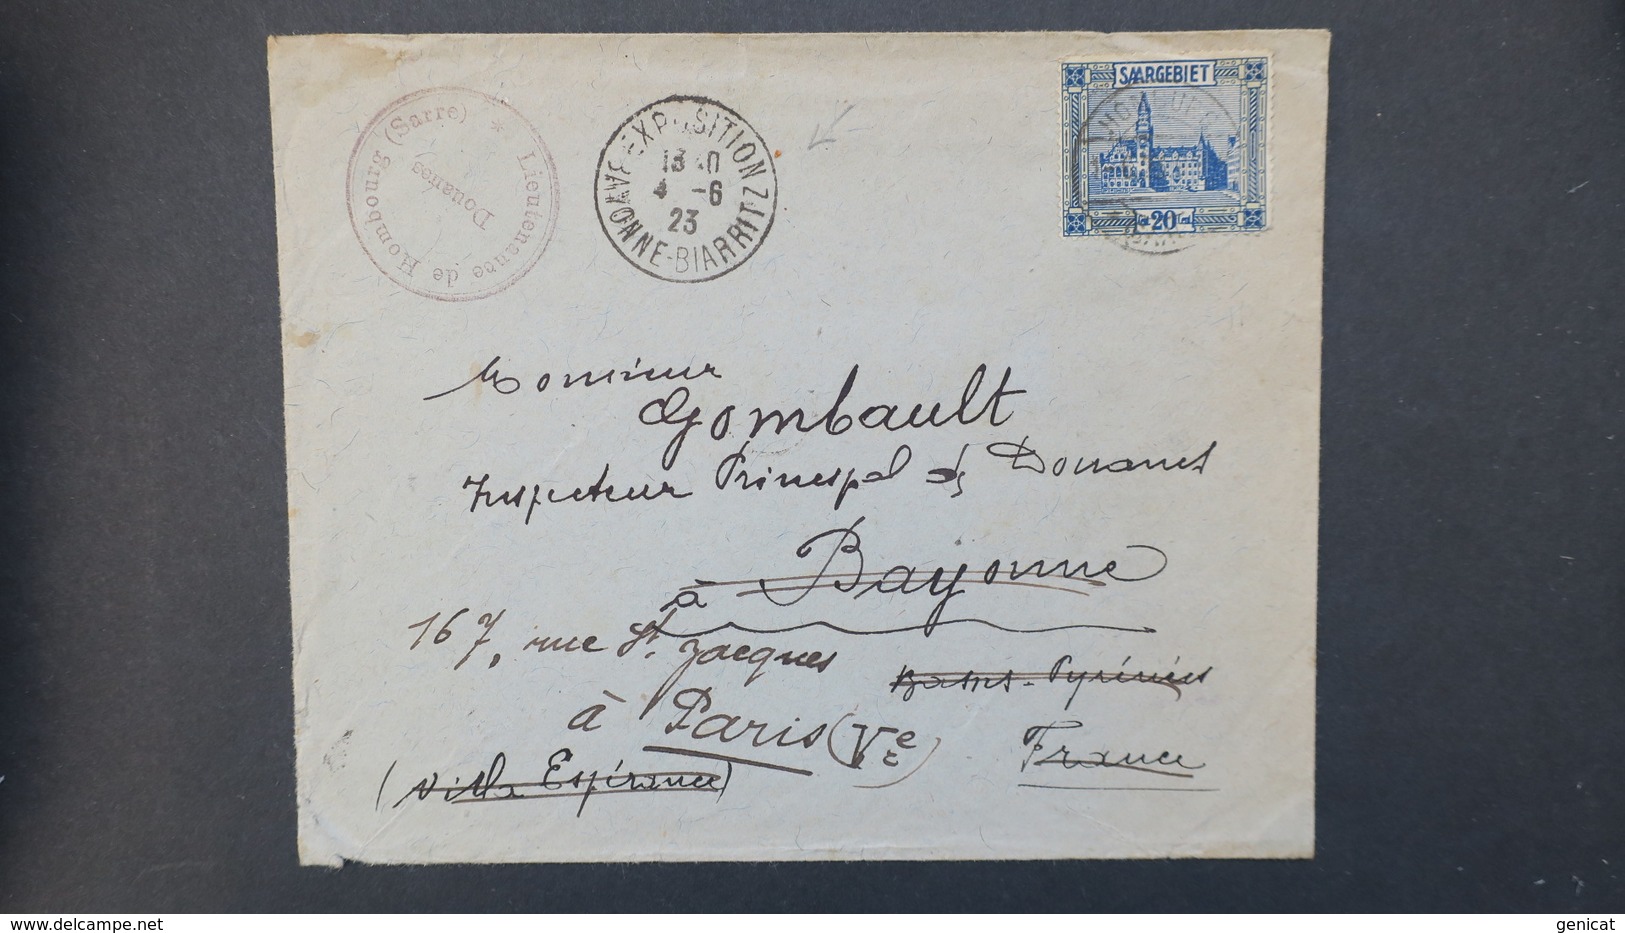 Lieutenance de Hombourg (Sarre) *
Douanes
EXPOSITION
13 40
4 -6
23
BAYONNE-BIARRITZ
SAARGEBIET
Cent. 20 Cent.
HOMBURG
Monsieur
Gombault
Inspecteur Principal des Douanes
à Bayonne
167, rue St. Jacques
Basses-Pyrénées
à Paris (Ve)
France
(Villa Espérance)
www.delcampe.net
genicat